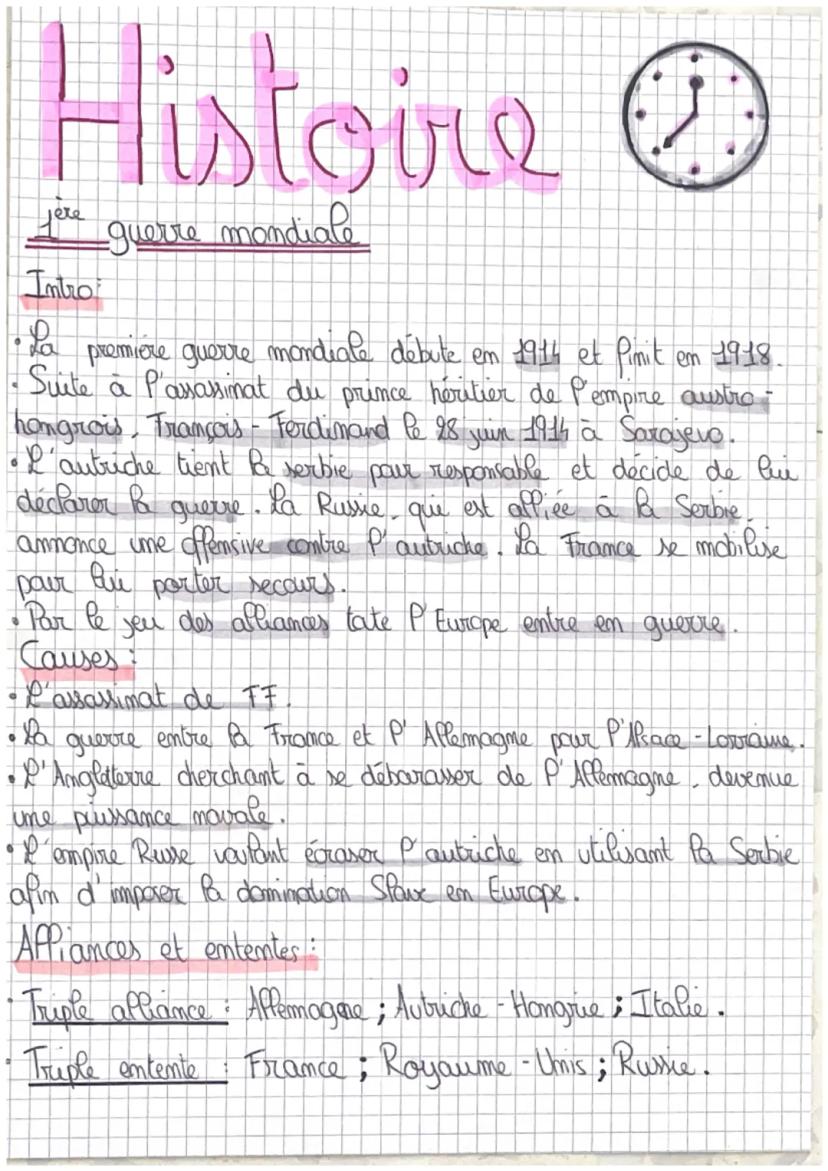 Histoire
1ère guerre mondiale
Intro:
• La première guerre mondiale débute en 1914 et finit en 1918.
• Suite à l'assassinat du prince héritier de l'empire austro-
hongrois, François-Ferdinand le 28 juin 1914 à Sarajevo.
• L'autriche tient la serbie pour responsable et décide de lui
déclarer la guerre. La Russie, qui est alliée à la Serbie,
annonce une offensive contre l'autriche. La France se mobilise
pour lui porter secours.
• Par le jeu des alliances toute l'Europe entre en guerre.
Causes:
• L'assassinat de FF.
• La guerre entre la France et l'Allemagne pour l'Alsace-Lorraine.
• L'Angleterre cherchant à se débarasser de l'Allemagne, devenue
une puissance navale.
• L'empire Russe voulant écraser l'autriche en utilisant la Serbie
afin d'imposer la domination Slave en Europe.
Alliances et ententes:
• Triple alliance : Allemagne ; Autriche-Hongrie ; Italie.
• Triple entente : France ; Royaume-Unis ; Russie.